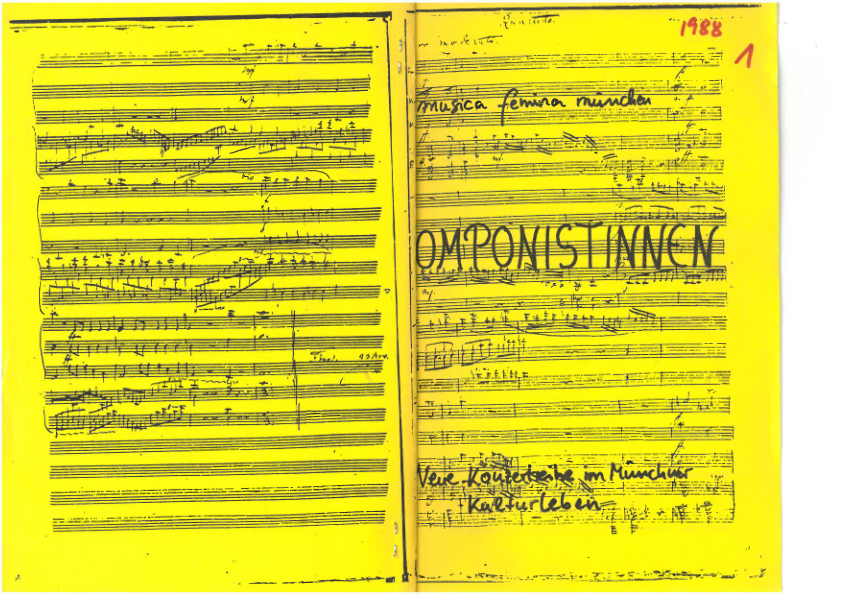 1988
1
musica femina münchen
OMPONISTINNEN
Neue Konzertreihe im Münchner
Kulturleben